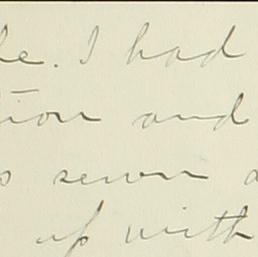 he. I had
tion and
s sewn a
up with